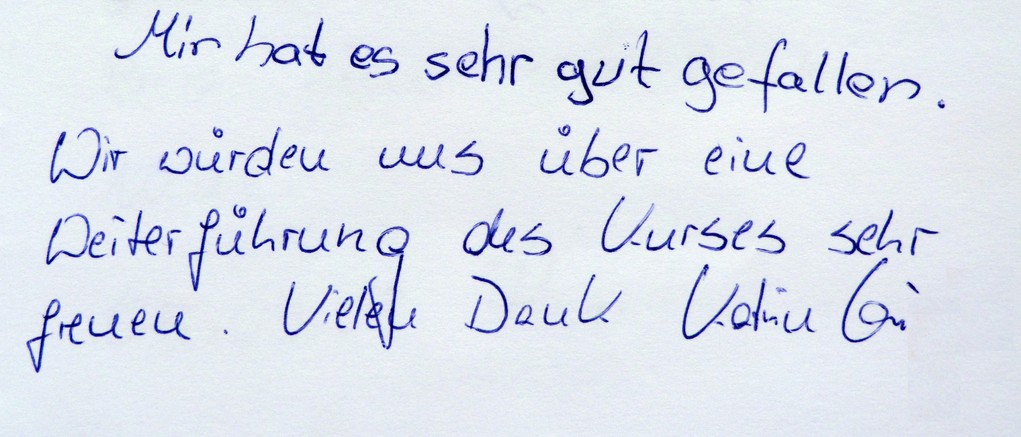 Mir hat es sehr gut gefallen.
Wir würden uns über eine
Weiterführung des Kurses sehr
freuen. Vielen Dank Katrin